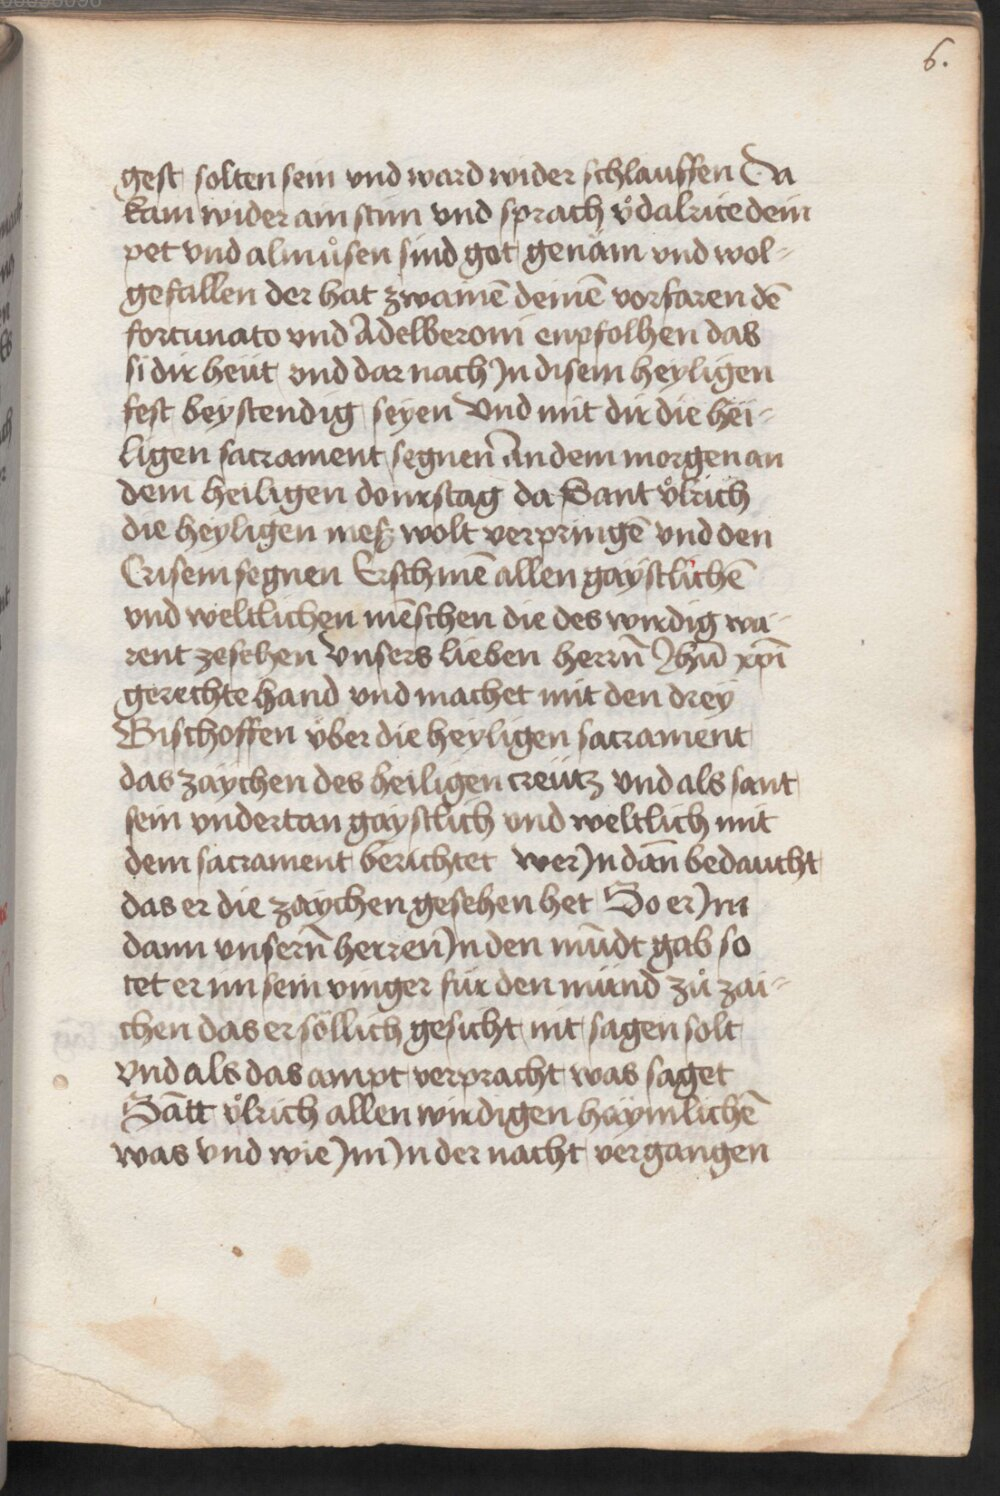 6.
gest solten sein vnd ward wider schlauffen Da
kam wider ain stim vnd sprach vͦdalrice dein
pet vnd almuͦsen sind got genäm vnd wol-
gefallen der hat zwainē deinē vorfaren dē
fortunato vnd Adelberoni enpfolhen das
si dir heüt vnd dar nach Jn disem heyligen
fest beystendig seyen Vnd mit dir die hei-
ligen sacrament segnen An dem morgen an
dem heiligen donrstag da Sant vͦlrich
die heyligen meß wolt verpringē vnd den
Crisem segnen Erschinē allen gaystlichē
vnd weltlichen mēschen die des wirdig wa-
rent zesehen Vnsers lieben herrn̄ Jhū xp̄i
gerechte hand vnd machet mit den drey
Bischoffen vͤber die heyligen sacrament
das zaychen des heiligen creütz vnd als sant
sein vndertan gaystlich vnd weltlich mit
dem sacrament berichtet wer Jn dan̄ bedaucht
das er die zaychen gesehen het So er Jm
dann vnsern̄ herren Jn den mūdt gab so
tet er im sein vinger für den münd zuͦ zai-
chen das er söllich gesicht nit sagen solt
vnd als das ampt verpracht was saget
Sātt vͦlrich allen wirdigen haymlichē
was vnd wie Jm Jn der nacht vergangen